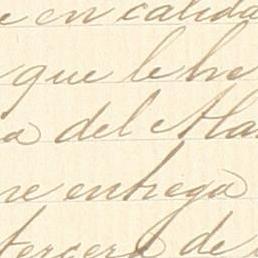 e en calida
que le he
a del Ma
ne entrega
tercera de